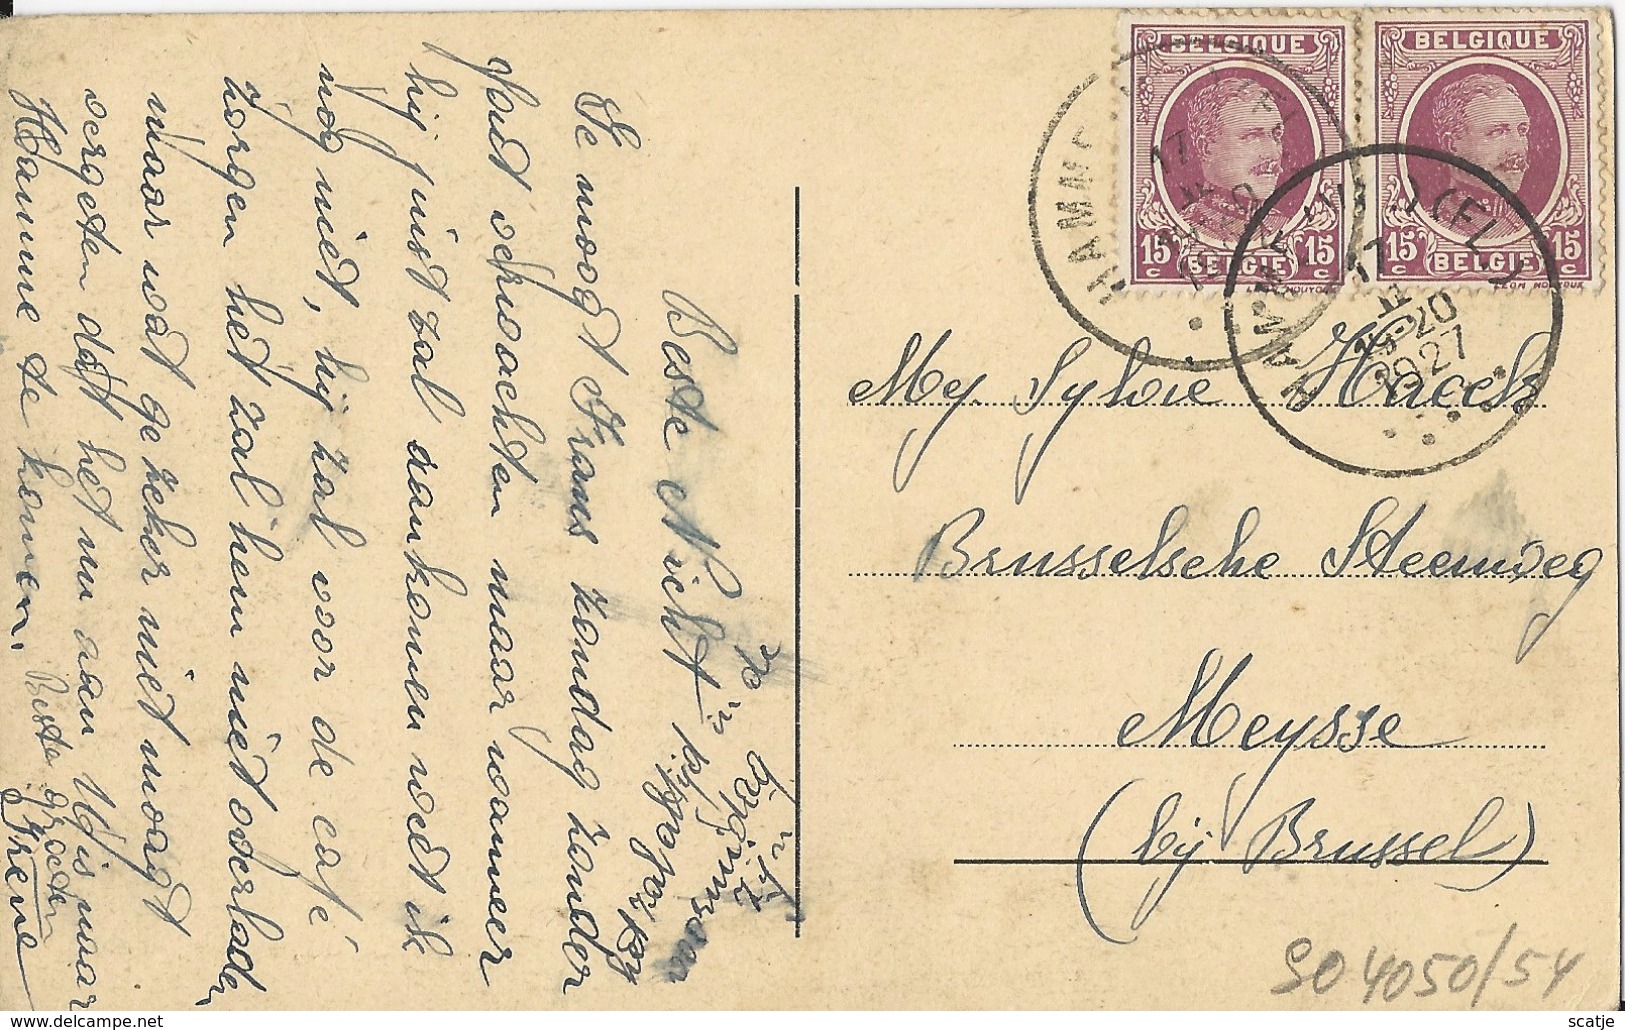 BELGIQUE
15 C 15 C
BELGIE
BELGIQUE
15 C 15 C
BELGIE
LEON HOUYOUX
HAMME
17
HAMME
17
19-20
1927
Mej. Sylvie Haeck
Brusselsche Steenweg
Meysse
(bij Brussel)
SO 4050/54
Beste Nicht
Je moogt Frans zondag zonder
fout verwachten maar wanneer
hij juist zal aankomen weet ik
nog niet, hij zal voor de café
zorgen het zal hem niet overladen,
maar wat ge zeker niet moogt
vergeten dat het nu aan U is naar
Hamme te komen.
Beste groeten
Irene
scatje
delcampe.net